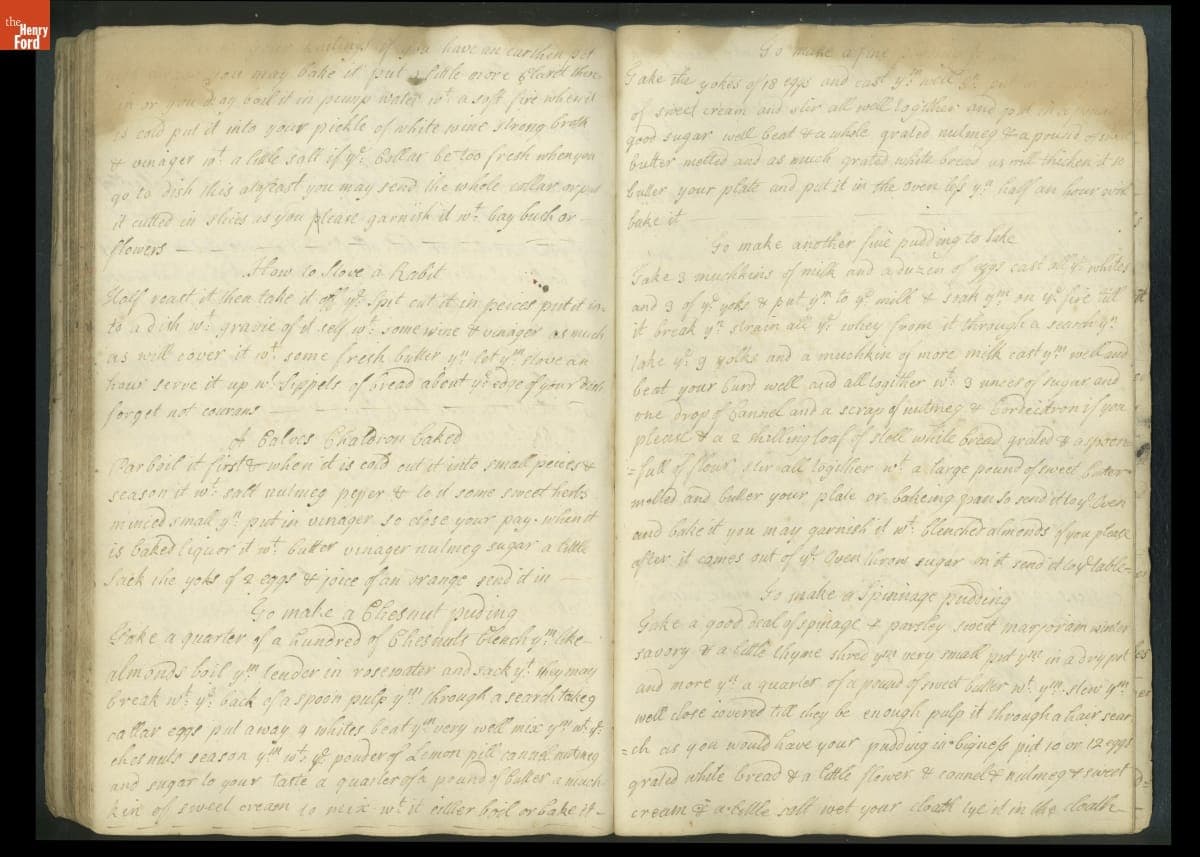 the
Henry
Ford
if you have an earthen pot
you may bake it put a little more Claret then
in or you may boil it in pump water wt. a soft fire when it
is cold put it into your pickle of white wine strong broth
& vinager wt. a little salt if ye. Collar be too fresh when you
go to dish this you may send the whole collar or put
it cutted in slices as you please garnish it wt. bay bush or
flowers
How to Stove a Rabit
Half roast it then take it off ye. spit cut it in peices put it in-
to a dish wt. gravie of it self wt. some wine & vinager as much
as will cover it wt. some fresh butter yn let ym stove an
hour serve it up wt. Sippels of bread about ye edge of your Dish
forget not courans
A Calves Chaldron baked
Parboil it first & when it is cold cut it into small peices &
season it wt. salt nutmeg peper & to it some sweet herbs
minced small yn put in vinager so close your pay. when it
is baked liquor it wt. butter vinager nutmeg sugar a little
Sack the yoks of 2 eggs & joice of an orange send it in
To make a Chesnut puding
Take a quarter of a hundred of Chesnuts blench ym like
almonds boil ym tender in rosewater and sack yt. they may
break wt. ye. back of a spoon pulp ym through a search take 9
caller eggs put away 4 whites beat ym very well mix ym wt. ye.
chesnuts season ym wt. ye powder of Lemon pill cannel nutmeg
and sugar to your taste a quarter of a pound of butter a much-
kin of sweet cream to mix wt. it either boil or bake it
To make a fine
Take the yokes of 18 eggs and cast ym well
of sweet cream and stir all well together and put in
good sugar well beat & a whole grated nutmeg & a pound of
butter melted and as much grated white bread as will thicken it so
butter your plate and put it in the oven less yn half an hour will
bake it
To make another fine pudding to bake
Take 3 muchkins of milk and a duzen of eggs cast all ye whites
and 3 of ye yoks & put ym to ye milk & ym on ye fire till
it break yn strain all ye whey from it through a search yn
take ye 9 yolks and a muchkin of more milk cast ym well and
beat your curd well and all togither wt. 3 unces of sugar and
one drop of Cannel and a scrap of nutmeg & Cordecitron if you
please & a 2 shilling loaf of stell white bread grated & a spoon
=full of flour stir all togither wt. a large pound of sweet butter
melted and butter your plate or bakeing pan so send it to ye Oven
and bake it you may garnish it wt. blenched almonds if you please
after it comes out of ye. Oven throw sugar on't send it to ye table=
To make a Spinnage pudding
Take a good deal of spinage & parsley sweet marjoram winter
savory & a little thyme shred ym very small put ym in a dry pot
and more yn a quarter of a pound of sweet butter wt. ym stew ym
well close covered till they be enough pulp it through a hair sear
=ch as you would have your pudding in bigness put 10 or 12 eggs
grated white bread & a little flower & cannel & nutmeg & sweet
cream & a little salt wet your cloath tye it in the cloath